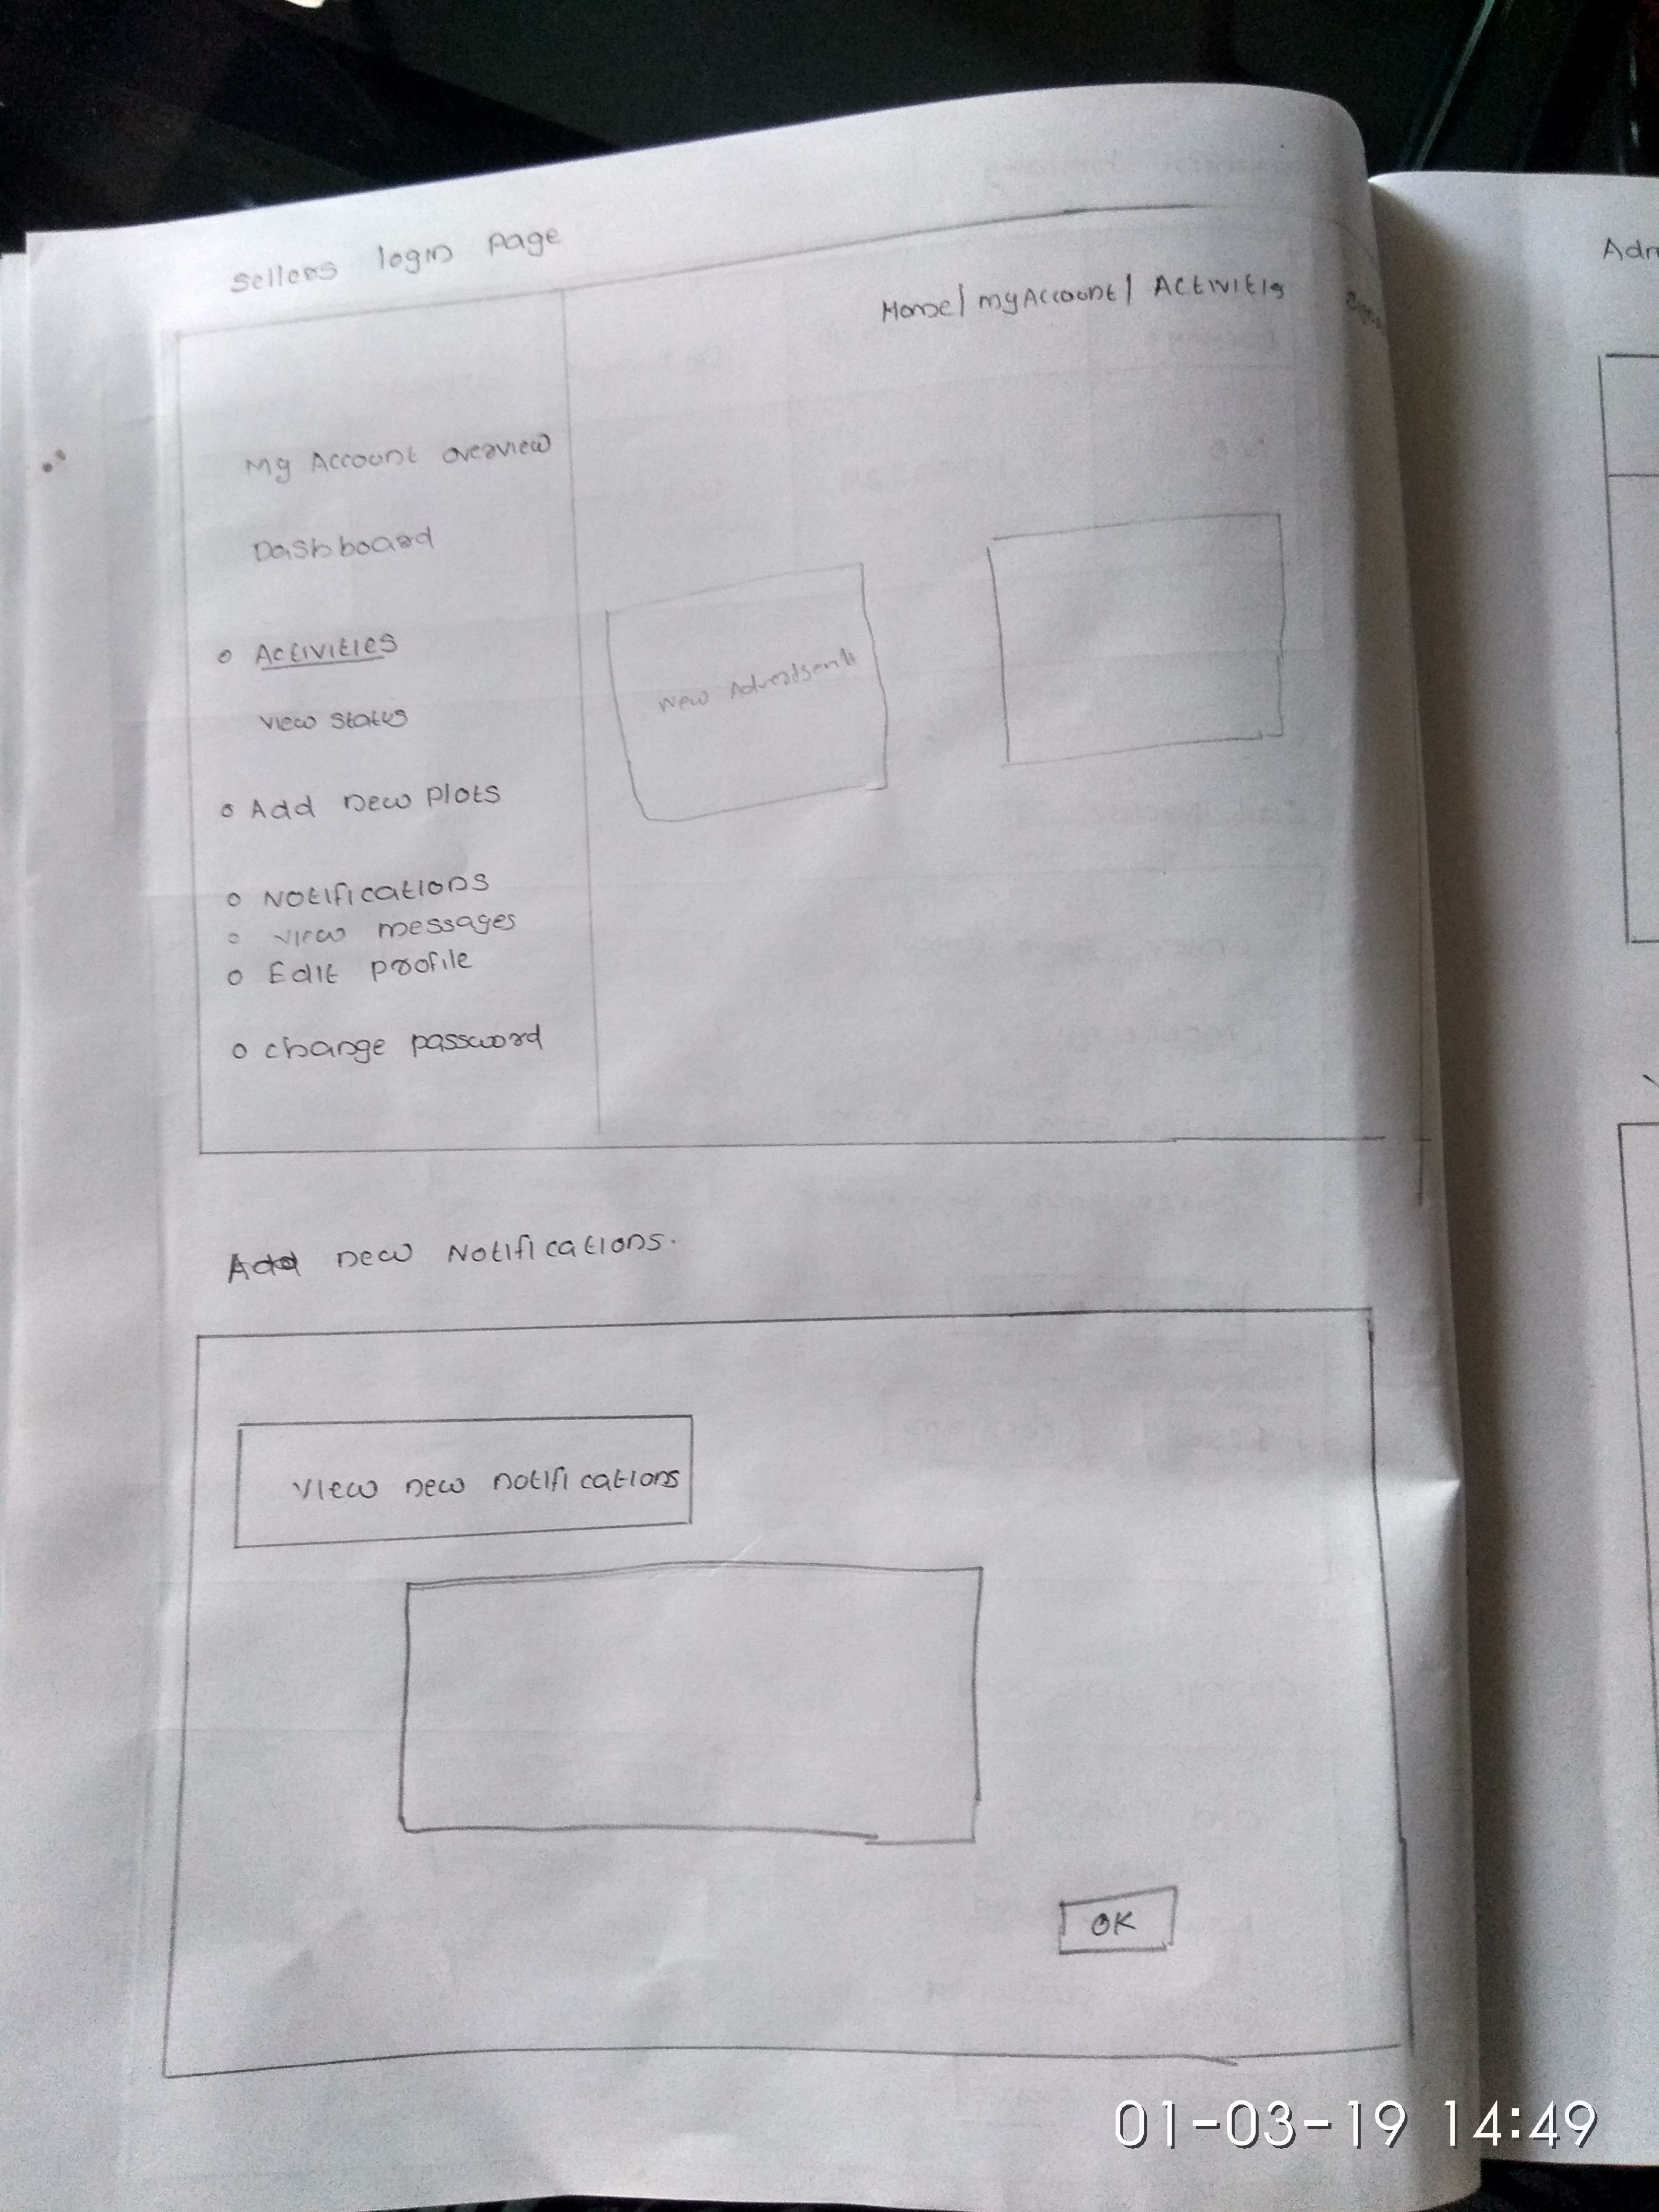 Sellers login page
Home/ myAccount/ Activitis
My Account overview
Dashboard
Activities
View status
Add new Plots
Notifications
View messages
Edit profile
change password
New Advertsents
Add new Notifications.
View new notifications
OK
Adm
01-03-19 14:49